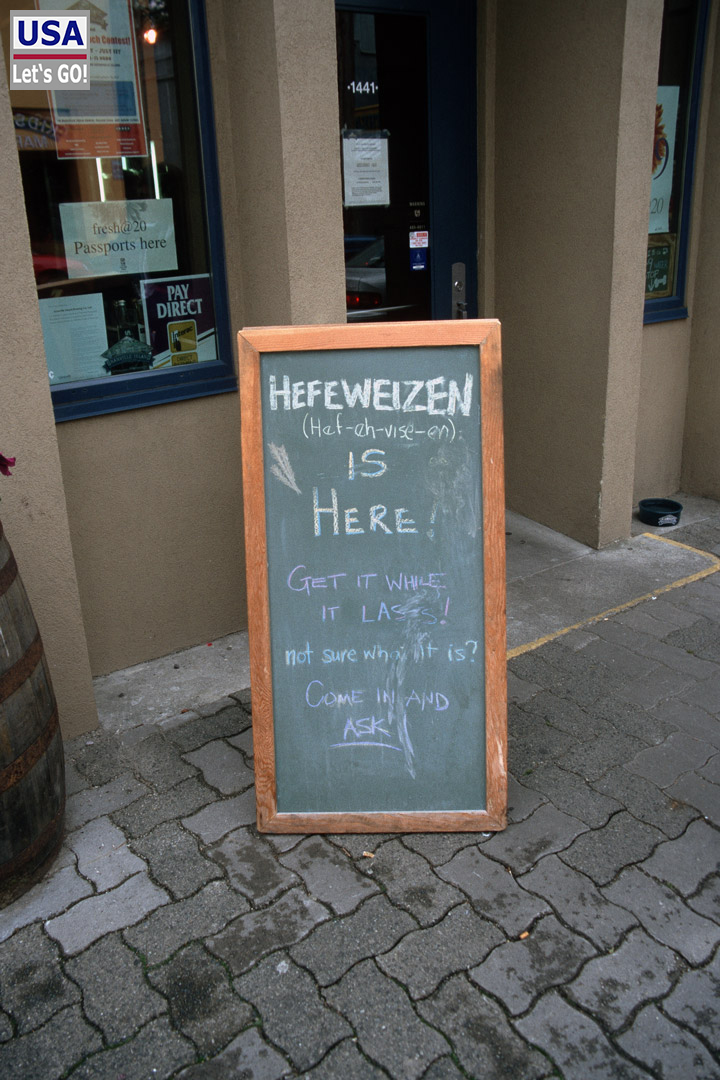 USA
Let's GO!
·1441·
fresh@20
Passports here
PAY
DIRECT
Interac
20
HEFEWEIZEN
(Hef-eh-vise-en)
IS
HERE!
GET IT WHILE
IT LASTS!
not sure what it is?
COME IN AND
ASK